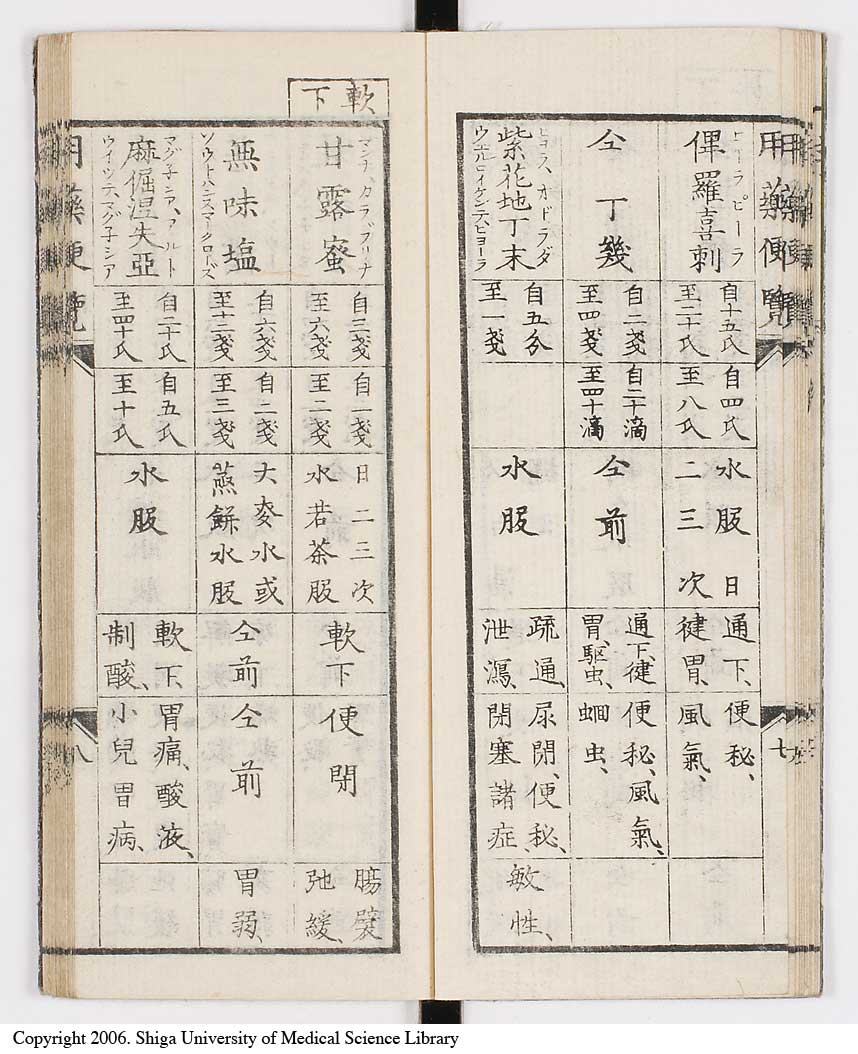 用藥便覽
ヒーラピーラ
俾羅喜刺
自十五氏
至二十氏
自四氏
至八氏
水服日
二三次
通下、
健胃、
便秘、
風氣、
仝丁幾
自二戔
至四戔
自二十滴
至四十滴
仝前
通下、健
胃、駆虫、
便秘、風氣、
蛔虫、
ヒヨラ、オドラダ
紫花地丁末
ウエルロイケンテ、ビヨーラ
自五分
至一戔
水服
疏通、
泄瀉、
尿閉、便秘、
閉塞諸症、
敏性、
七
軟下
マンナ、カラブリーナ
甘露蜜
自三戔
至六戔
自一戔
至二戔
日二三次
水若茶服
軟下
便閉
腸襞
弛緩、
無味塩
ソウトハンスマークローズ
自六戔
至十二戔
自二戔
至三戔
大麥水或
蒸餅水服
仝前
仝前
胃弱、
マグ子シア、アルト
麻倔涅失亞
ウイツテ、マグ子シア
自二十氏
至四十氏
自五氏
至十氏
水服
軟下、
制酸、
胃痛、酸液、
小兒胃病、
用藥便覽
八
Copyright 2006. Shiga University of Medical Science Library